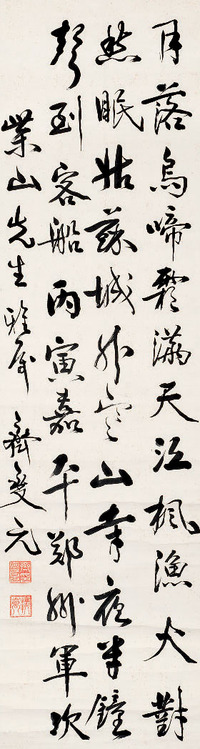 月落烏啼霜滿天江楓漁火對
愁眠姑蘇城外寒山寺夜半鐘
聲到客船丙寅嘉平鄭州軍次
業山先生雅屬 齊燮元